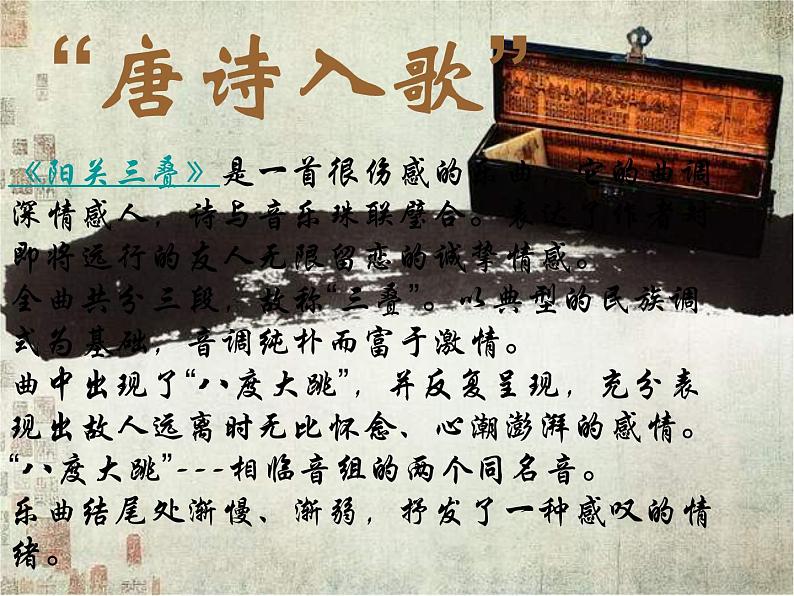 “唐诗入歌”
《阳关三叠》是一首很伤感的乐曲，它的曲调
深情感人，诗与音乐珠联璧合。表达了作者对
即将远行的友人无限留恋的诚挚情感。
全曲共分三段，故称“三叠”。以典型的民族调
式为基础，音调纯朴而富于激情。
曲中出现了“八度大跳”，并反复呈现，充分表
现出故人远离时无比怀念、心潮澎湃的感情。
“八度大跳”---相临音组的两个同名音。
乐曲结尾处渐慢、渐弱，抒发了一种感叹的情
绪。